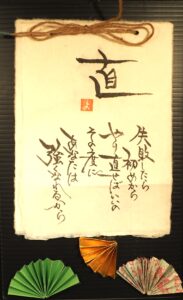 直
失敗したら
初めから
やり直せばいい
その度に
あなたは
強くなれるから